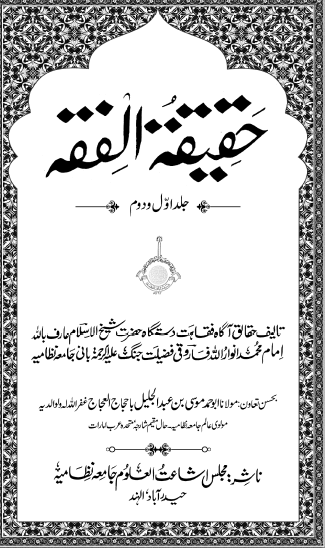 حَقِیقَۃُ الْفِقہ
جلد اوّل و دوم
تالیف حقائق آگاہ فقاہت دستگاہ حضرت شیخ الاسلام عارف باللہ
امام محمد انوار اللہ فاروقی فضیلت جنگ علیہ الرحمۃ بانی جامعہ نظامیہ
بحسن تعاون: مولانا ابو محمد موسی بن عبد الجلیل باحجاج العجاج غفر اللہ لہ ولوالدیہ
مولوی عالم جامعہ نظامیہ۔ حال مقیم شارجہ متحدہ عرب امارات
ناشر: مجلس اشاعت العلوم جامعہ نظامیہ
حیدرآباد۔ الہند